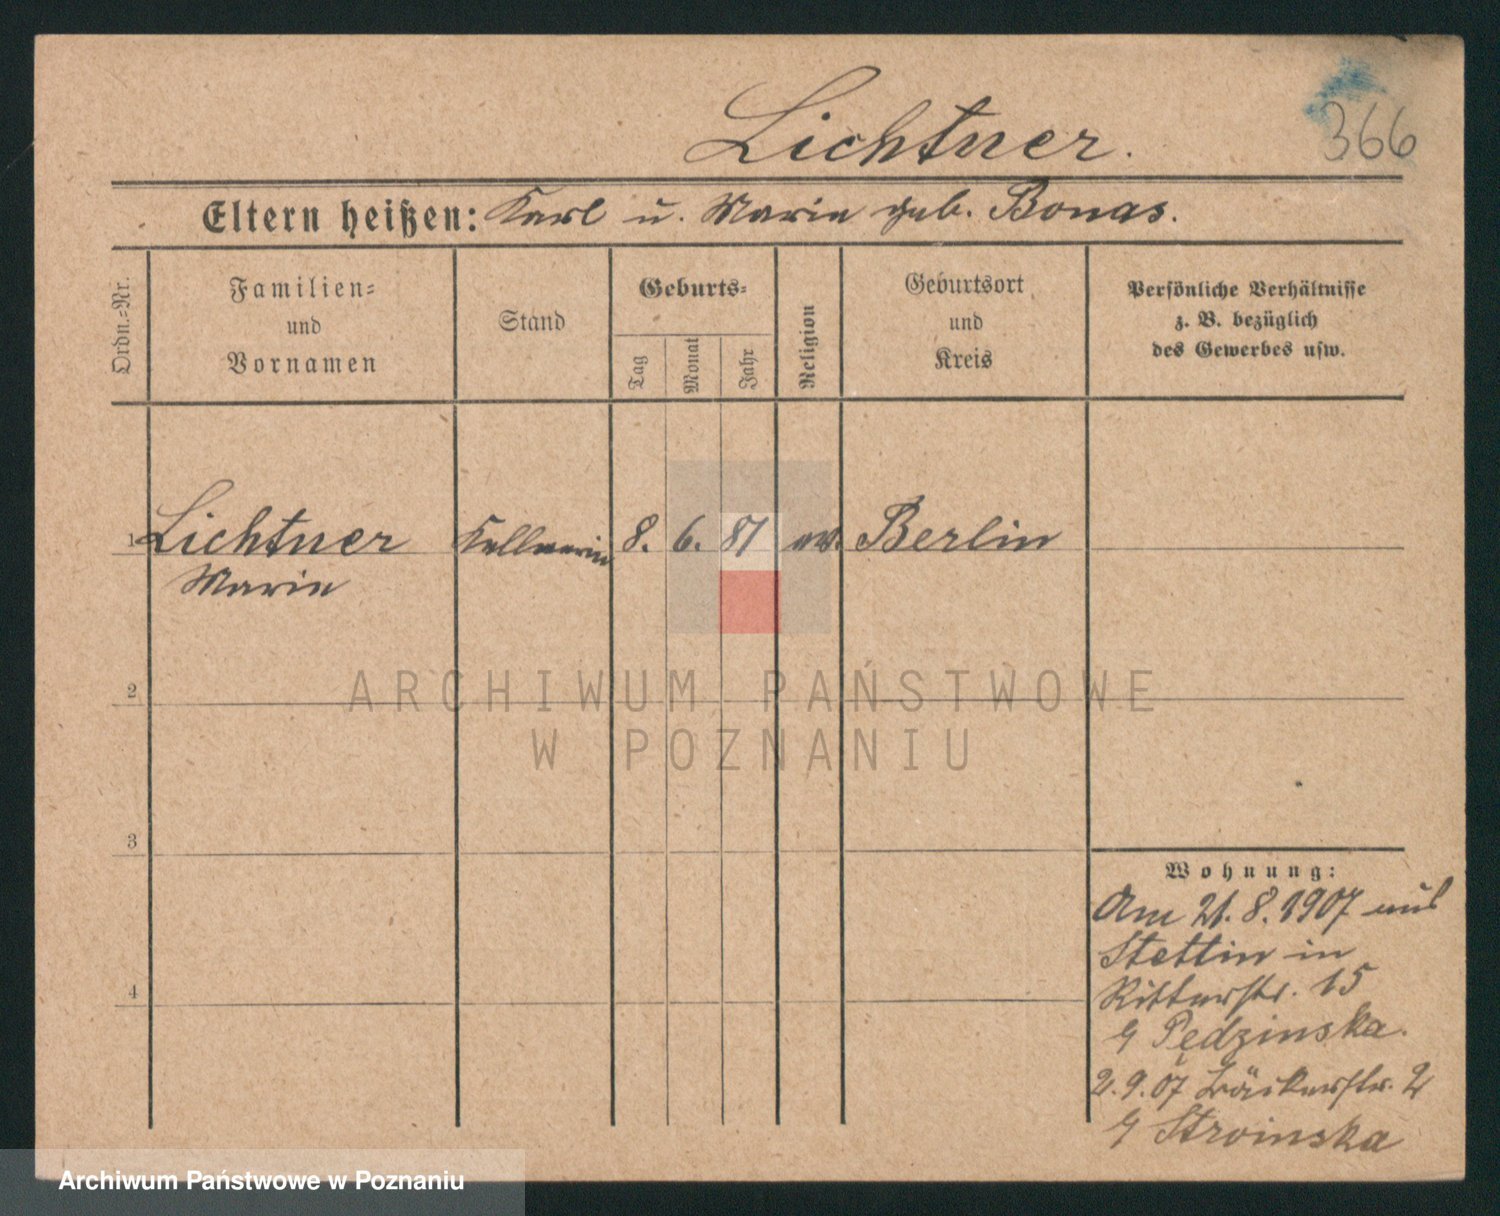 Lichtner.
366
Eltern heißen: Karl u. Marie geb. Bonas.
Ordn.-Nr.
Familien-
und
Vornamen
Stand
Geburts-
Tag
Monat
Jahr
Religion
Geburtsort
und
Kreis
Persönliche Verhältnisse
z. B. bezüglich
des Gewerbes usw.
1 Lichtner Kellnerin 8. 6. 87 ev. Berlin
Marie
2
3
4
Wohnung:
Am 21.8.1907 aus
Stettin in
Ritterstr. 15
Pędzinska.
2.9.07 Bäckerstr. 2
Stroinska
ARCHIWUM PAŃSTWOWE
W POZNANIU
Archiwum Państwowe w Poznaniu